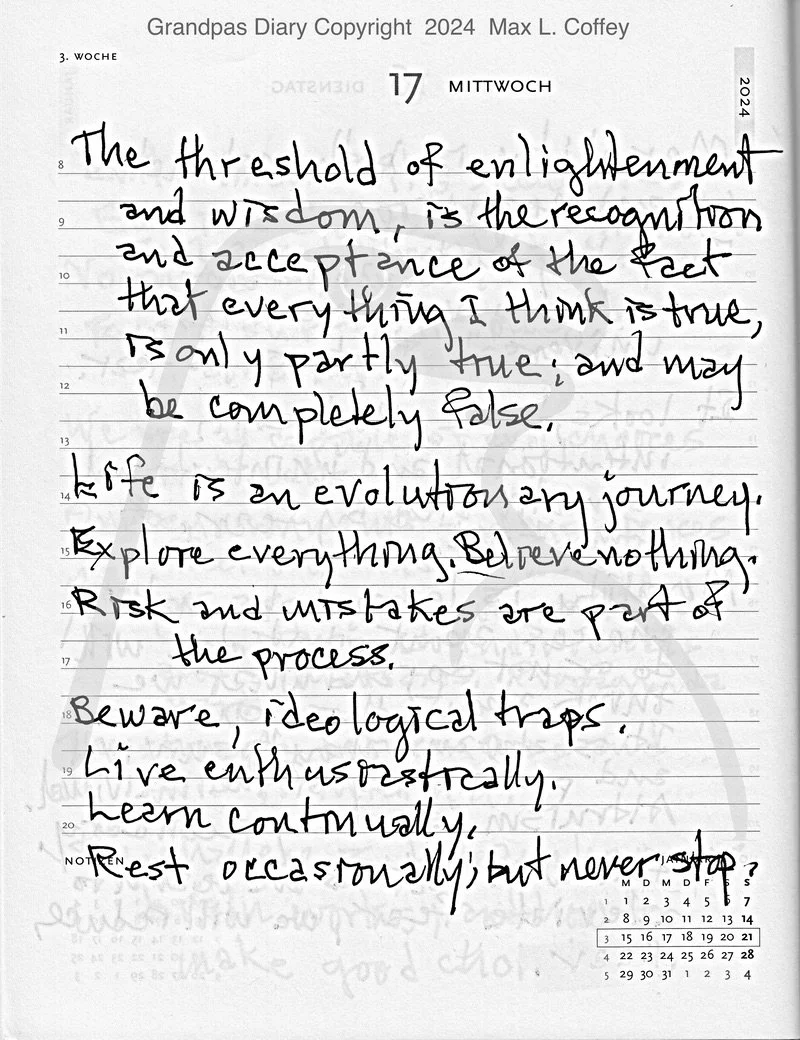 Grandpas Diary Copyright 2024 Max L. Coffey
3. WOCHE
17 MITTWOCH
2024
8 The threshold of enlightenment
9 and wisdom, is the recognition
10 and acceptance of the fact
11 that everything I think is true,
12 is only partly true; and may
13 be completely false.
14 Life is an evolutionary journey.
15 Explore everything. Believe nothing.
16 Risk and mistakes are part of
17 the process.
18 Beware, ideological traps.
19 Live enthusiastically.
20 Learn continually.
NOTIZEN Rest occasionally; but never stop.
JANUAR
M D M D F S S
1 1 2 3 4 5 6 7
2 8 9 10 11 12 13 14
3 15 16 17 18 19 20 21
4 22 23 24 25 26 27 28
5 29 30 31 1 2 3 4